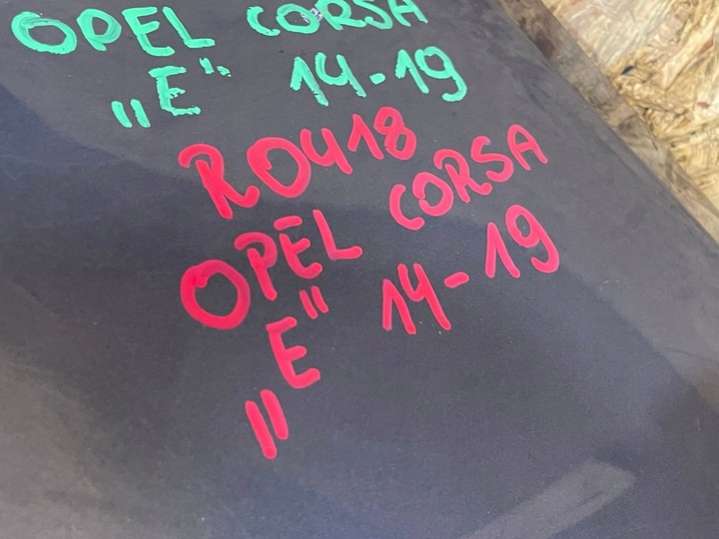 OPEL CORSA
„E" 14-19
R0418
OPEL CORSA
„E" 14-19